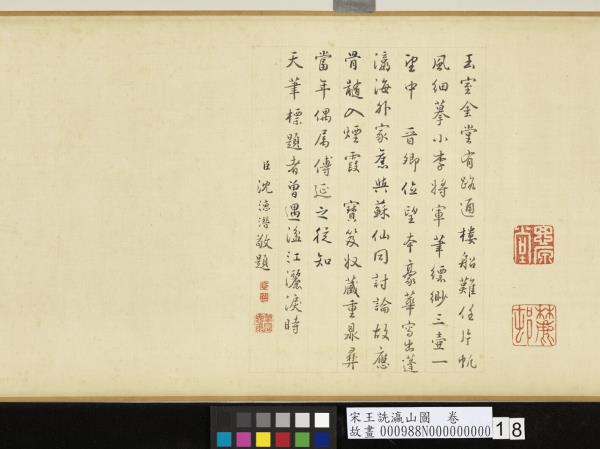 玉室金堂有路通樓船難任片帆
風細摹小李將軍筆縹緲三壺一
望中 晉卿位望本豪華寫出蓬
瀛海外家應與蘇仙同討論故應
骨髓入煙霞 寶笈收藏重鼎彝
當年偶屬傅延之從知
天筆標題者曾遇湓江灑淚時
臣沈德潛敬題
宋王詵瀛山圖 卷
故畫 000988N000000000
18